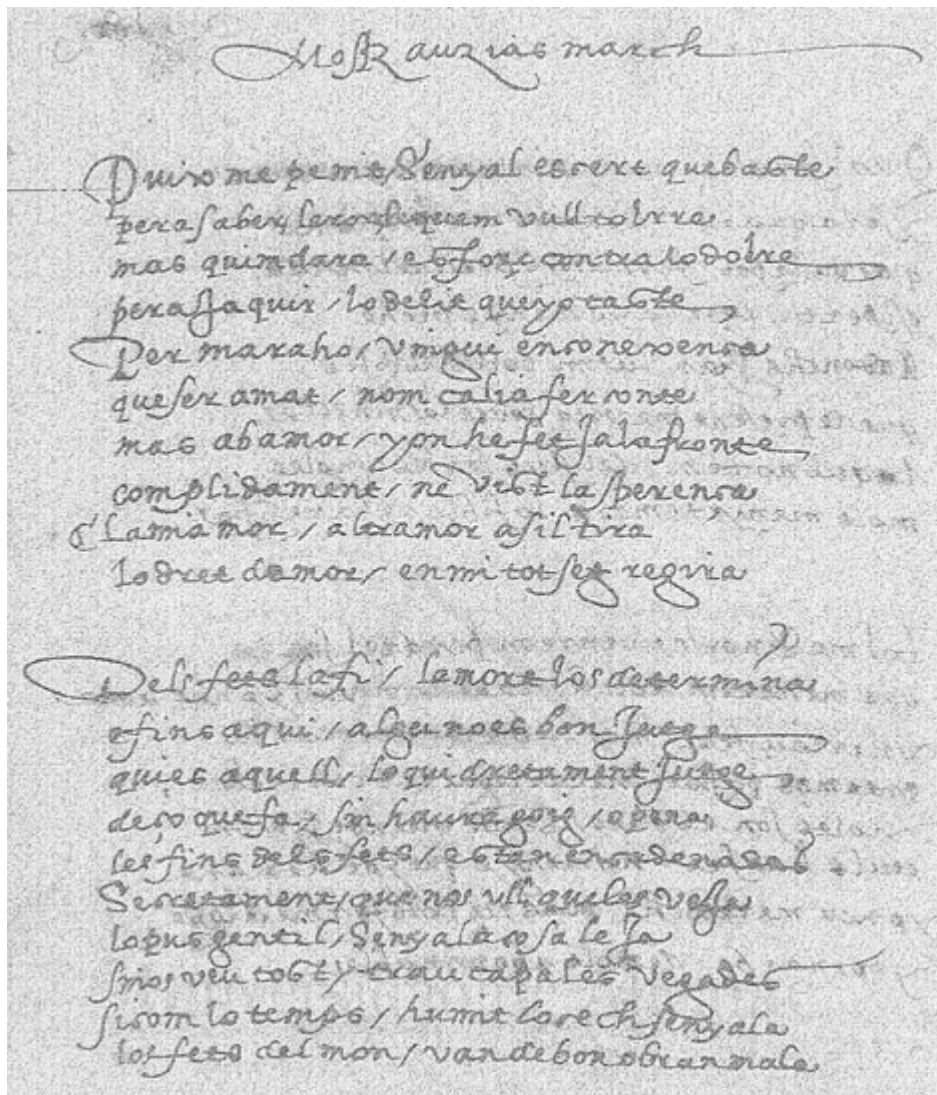 Mossen auzias march
Puix me penit, Senyal es cert que baste
pera saber, lo quem vull tolrre
mas quim dara / esforç contra lo dolre
pera jaquir / lo delit que yo taste
Per ma raho / vingui en conexença
que ser amat / nom calia fer conte
mas ab amor / yon he fet Jala fronte
complidament / ne vist la sperença
La mia mor / altramor a sil tira
lo dret damor / en mi tot seg regira
Dels fets la fi / la mort los determina
e fins aqui / algu no es bon Juege
qui es aquell / lo qui dretament Juege
de ço que fa / sin haura goig / o pena
les fins dels fets / estan encadenades
Secretament / que nos ull que les veja
lo pus gentil / Senyala cosa leja
si nos veu tost / trau capa les vegades
si com lo temps / humit lo sech senyala
los fets del mon / van de bon obran mala